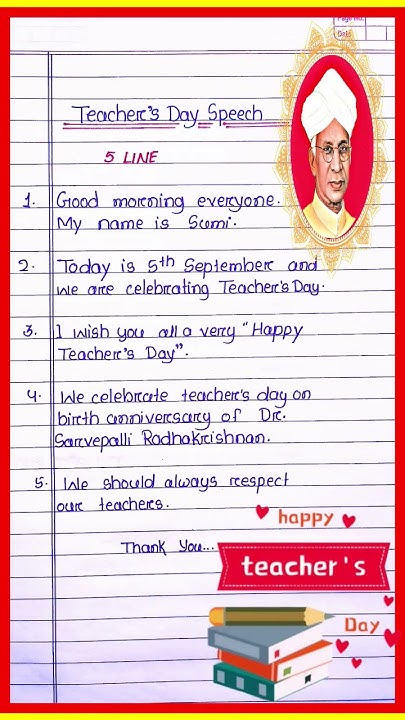 Page No.
Date
Teacher's Day Speech
5 LINE
1. Good morning everyone.
My name is Sumi.
2. Today is 5th September and
we are celebrating Teacher's Day.
3. I wish you all a very "Happy
Teacher's Day".
4. We celebrate teacher's day on
birth anniversary of Dr.
Sarvepalli Radhakrishnan.
5. We should always respect
our teachers.
Thank You...
happy
teacher's
Day